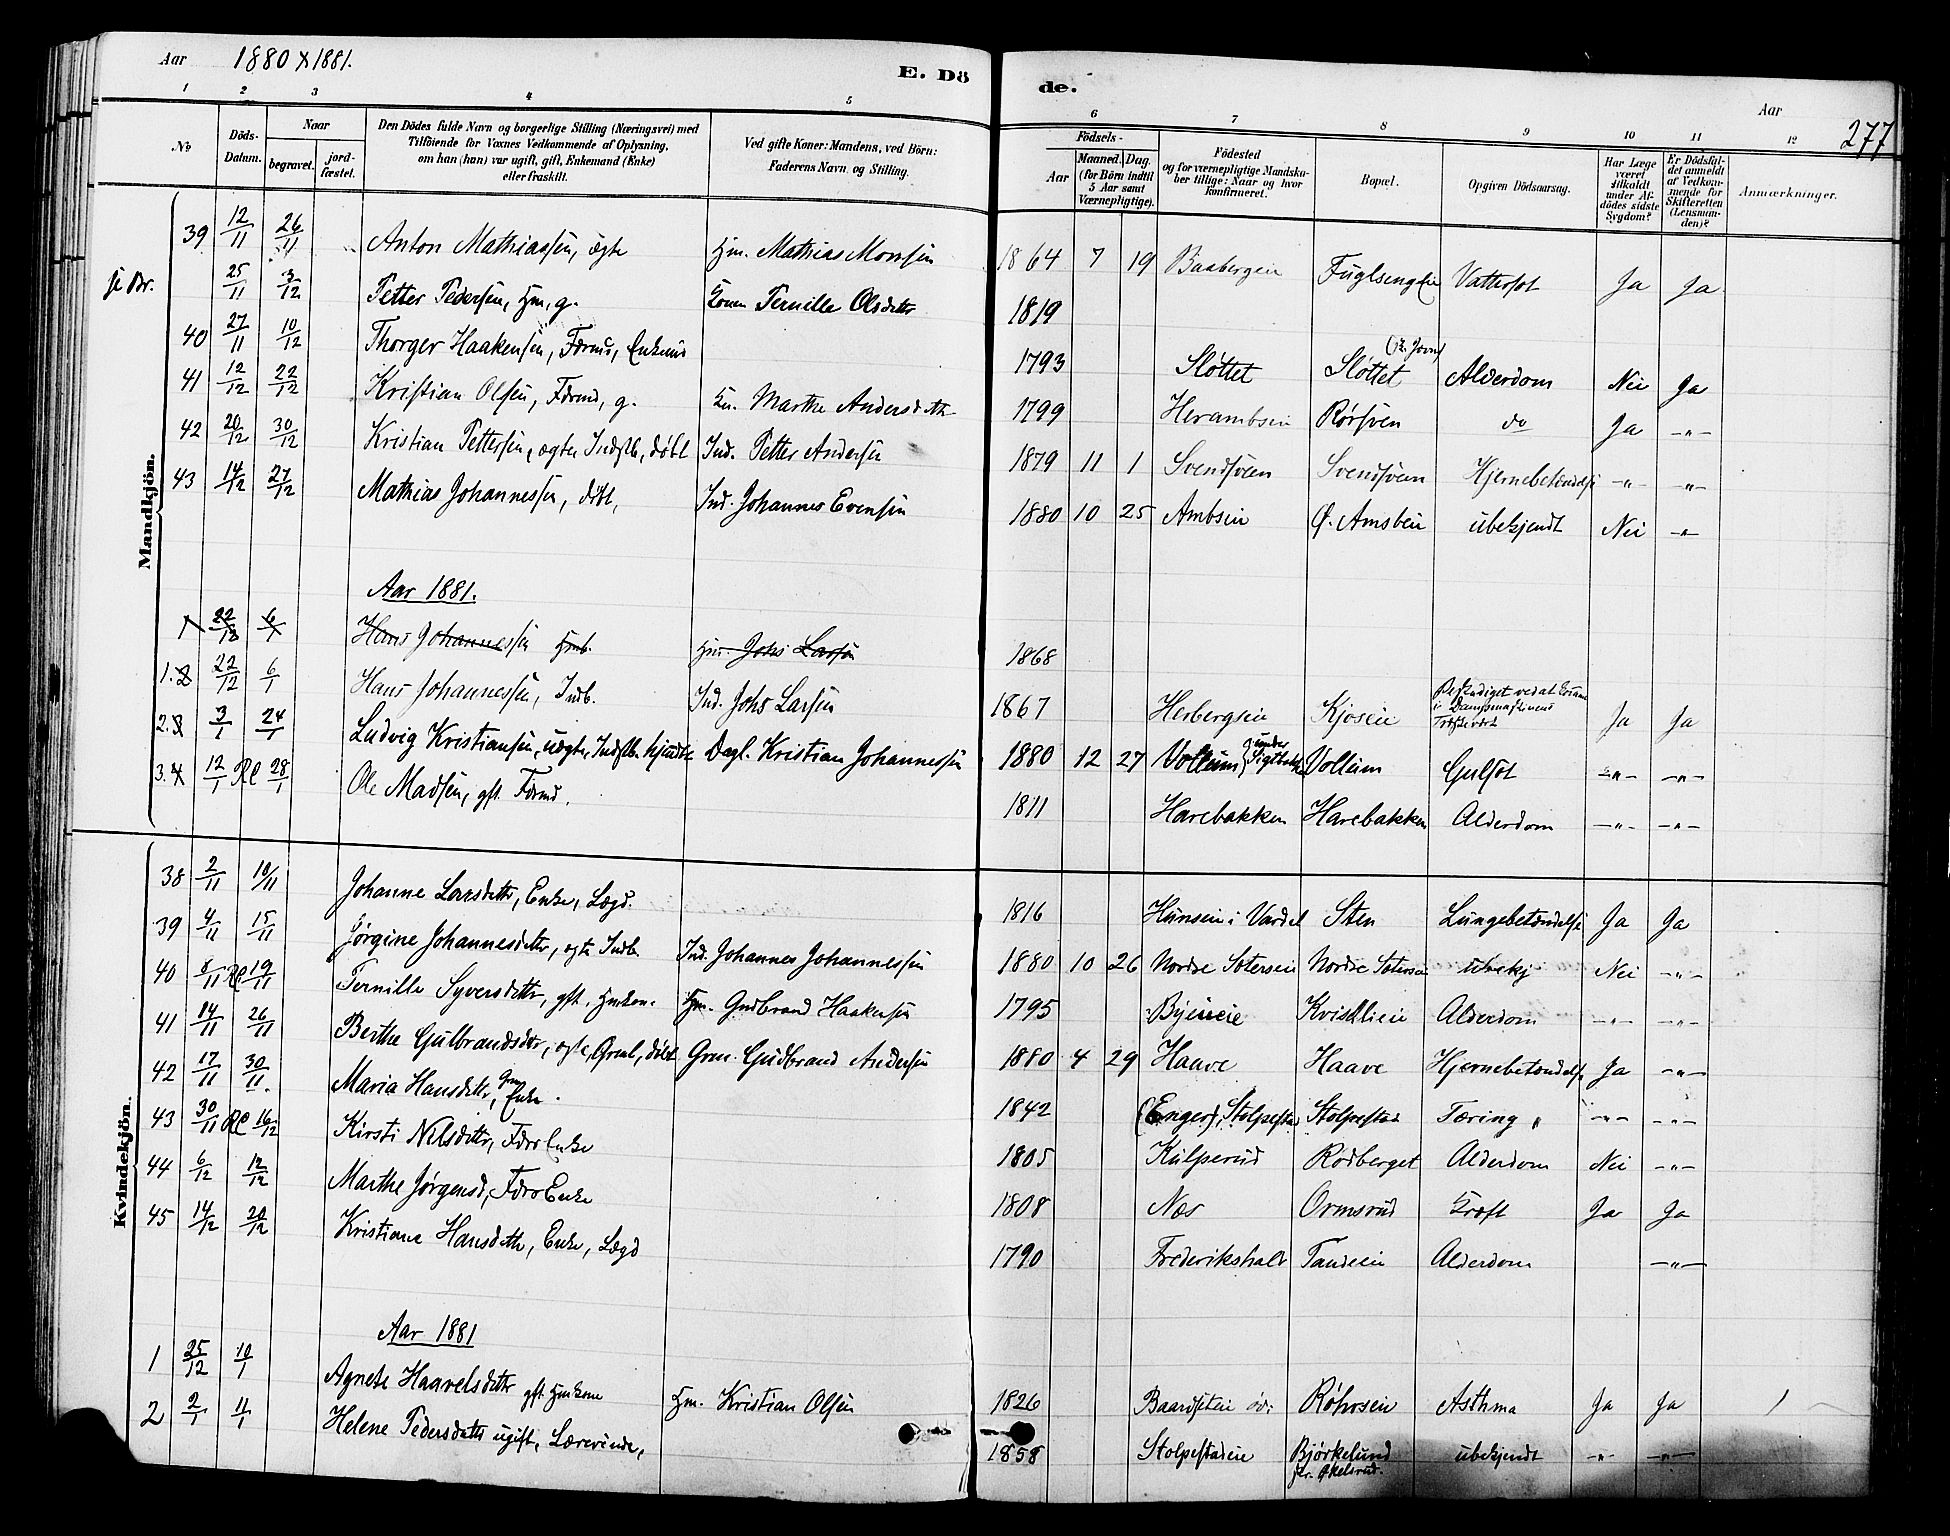 Aar 1880 X 1881.
E. Döde.
Aar
277
1 2 3 4 5 6 7 8 9 10 11 12
No
Döds-Datum.
Naar
begravet.
jordfæstet.
Den Dödes fulde Navn og borgerlige Stilling (Næringsvei) med
Tilföiende for Voxnes Vedkommende af Oplysning,
om han (hun) var ugift, gift, Enkemand (Enke)
eller fraskilt.
Ved gifte Koner: Mandens, ved Börn:
Faderens Navn og Stilling.
Födsels-
Aar
Maaned. Dag.
(for Börn indtil
5 Aar samt
Værnepligtige).
Födested
og for værnepligtige Mandskaber tillige: Naar og hvor
konfirmeret.
Bopæl.
Opgiven Dödsaarsag.
Har Læge
været
tilkaldt
under Afdödes sidste
Sygdom?
Er Dödsfaldet anmeldt
af Vedkommende for
Skifteretten
(Lensmanden)?
Anmærkninger.
Mandkjön.
39 12/11 26/11 Anton Mathiassen, ægte Hm. Mathias Monsen 1864 7 19 Baabergeie Fuglsengeie Vattersot Ja Ja
25/11 3/12 Petter Pedersen, Hm, g. Konen Pernille Olsdatter 1819
40 27/11 10/12 Thorger Haakensen, Førmd, Enkmd 1793 Sløttet Sløttet Alderdom Nei Ja
41 12/12 22/12 Kristian Olsen, Førmd, g. Kn. Marthe Andersdtr 1799 Herambseie Rørsven do Ja -"-
42 20/12 30/12 Kristian Pettersen, ægte, Indstb, døbt Ind. Petter Andersen 1879 11 1 Svendsveen Svendsveen Hjernebetændelse -"- -"-
43 14/12 27/12 Mathias Johannessen, døbt, Ind. Johannes Evensen 1880 10 25 Ambseie Ø. Amsbeie ubekjendt Nei -"-
Aar 1881.
1 22/12 6/1 Hans Johannessen Hmb. Hm. Johs Larsen 1868
1. 2 22/12 6/1 Hans Johannessen, Indb. Ind. Johs Larsen 1867 Herbergseie Kjoseie Ja Ja
2. 3 3/1 24/1 Ludvig Kristiansen, uægte, Indstb. hjmdbt Dagl. Kristian Johannessen 1880 12 27 Vollum, Vollum Gulsot -"- -"-
3. 4 12/1 RC 28/1 Ole Madsen, gft. Førmd. 1811 Harebakken Harebakken Alderdom -"- -"-
Kvindekjön.
38 2/11 10/11 Johanne Larsdatter, Enke, Lægd. 1816 Hunseie i Vardal Sten Lungebetændelse Ja Ja
39 4/11 15/11 Jørgine Johannesdatter, ægte Indb. Ind. Johannes Johannessen 1880 10 26 Nordre Soterseie Nordre ubekj Nei -"-
40 RC 19/11 Pernille Syversdatter, gft. Hmkon. Hm. Gudbrand Haakensen 1795 Byeneie Kvislheie Alderdom -"- -"-
41 14/11 26/11 Berthe Gulbrandsdtr, ægte, Grmb, døbt Grm. Gudbrand Andersen 1880 4 29 Haave Haave Hjernebetændelse Ja -"-
42 17/11 30/11 Maria Hansdatter, Grm Enke. 1842 (Enger), Stolpestad Stolpestad Tæring " -"- -"-
43 30/11 RC 16/12 Kirsti Nilsdatter, Førs Enke 1805 Kulperud Rødberget Alderdom Nei -"-
44 6/12 12/12 Marthe Jørgensd, Førs Enke 1808 Næs Ormsrud Kræft Ja Ja
45 14/12 20/12 Kristiane Hansdatter, Enke, Lægd 1790 Frederikshald Tandeie Alderdom -"-
Aar 1881
1 25/12 10/1 Agnete Haavelsdatter gft Hmkone Hm. Kristian Olsen 1826 Baardseteie Røhnseie Asthma Ja Ja
2 2/1 11/1 Helene Pedersdatter ugift, Lærerinde, 1858 Stolpestadeie Bjørkelund ubekjendt -"- -"-